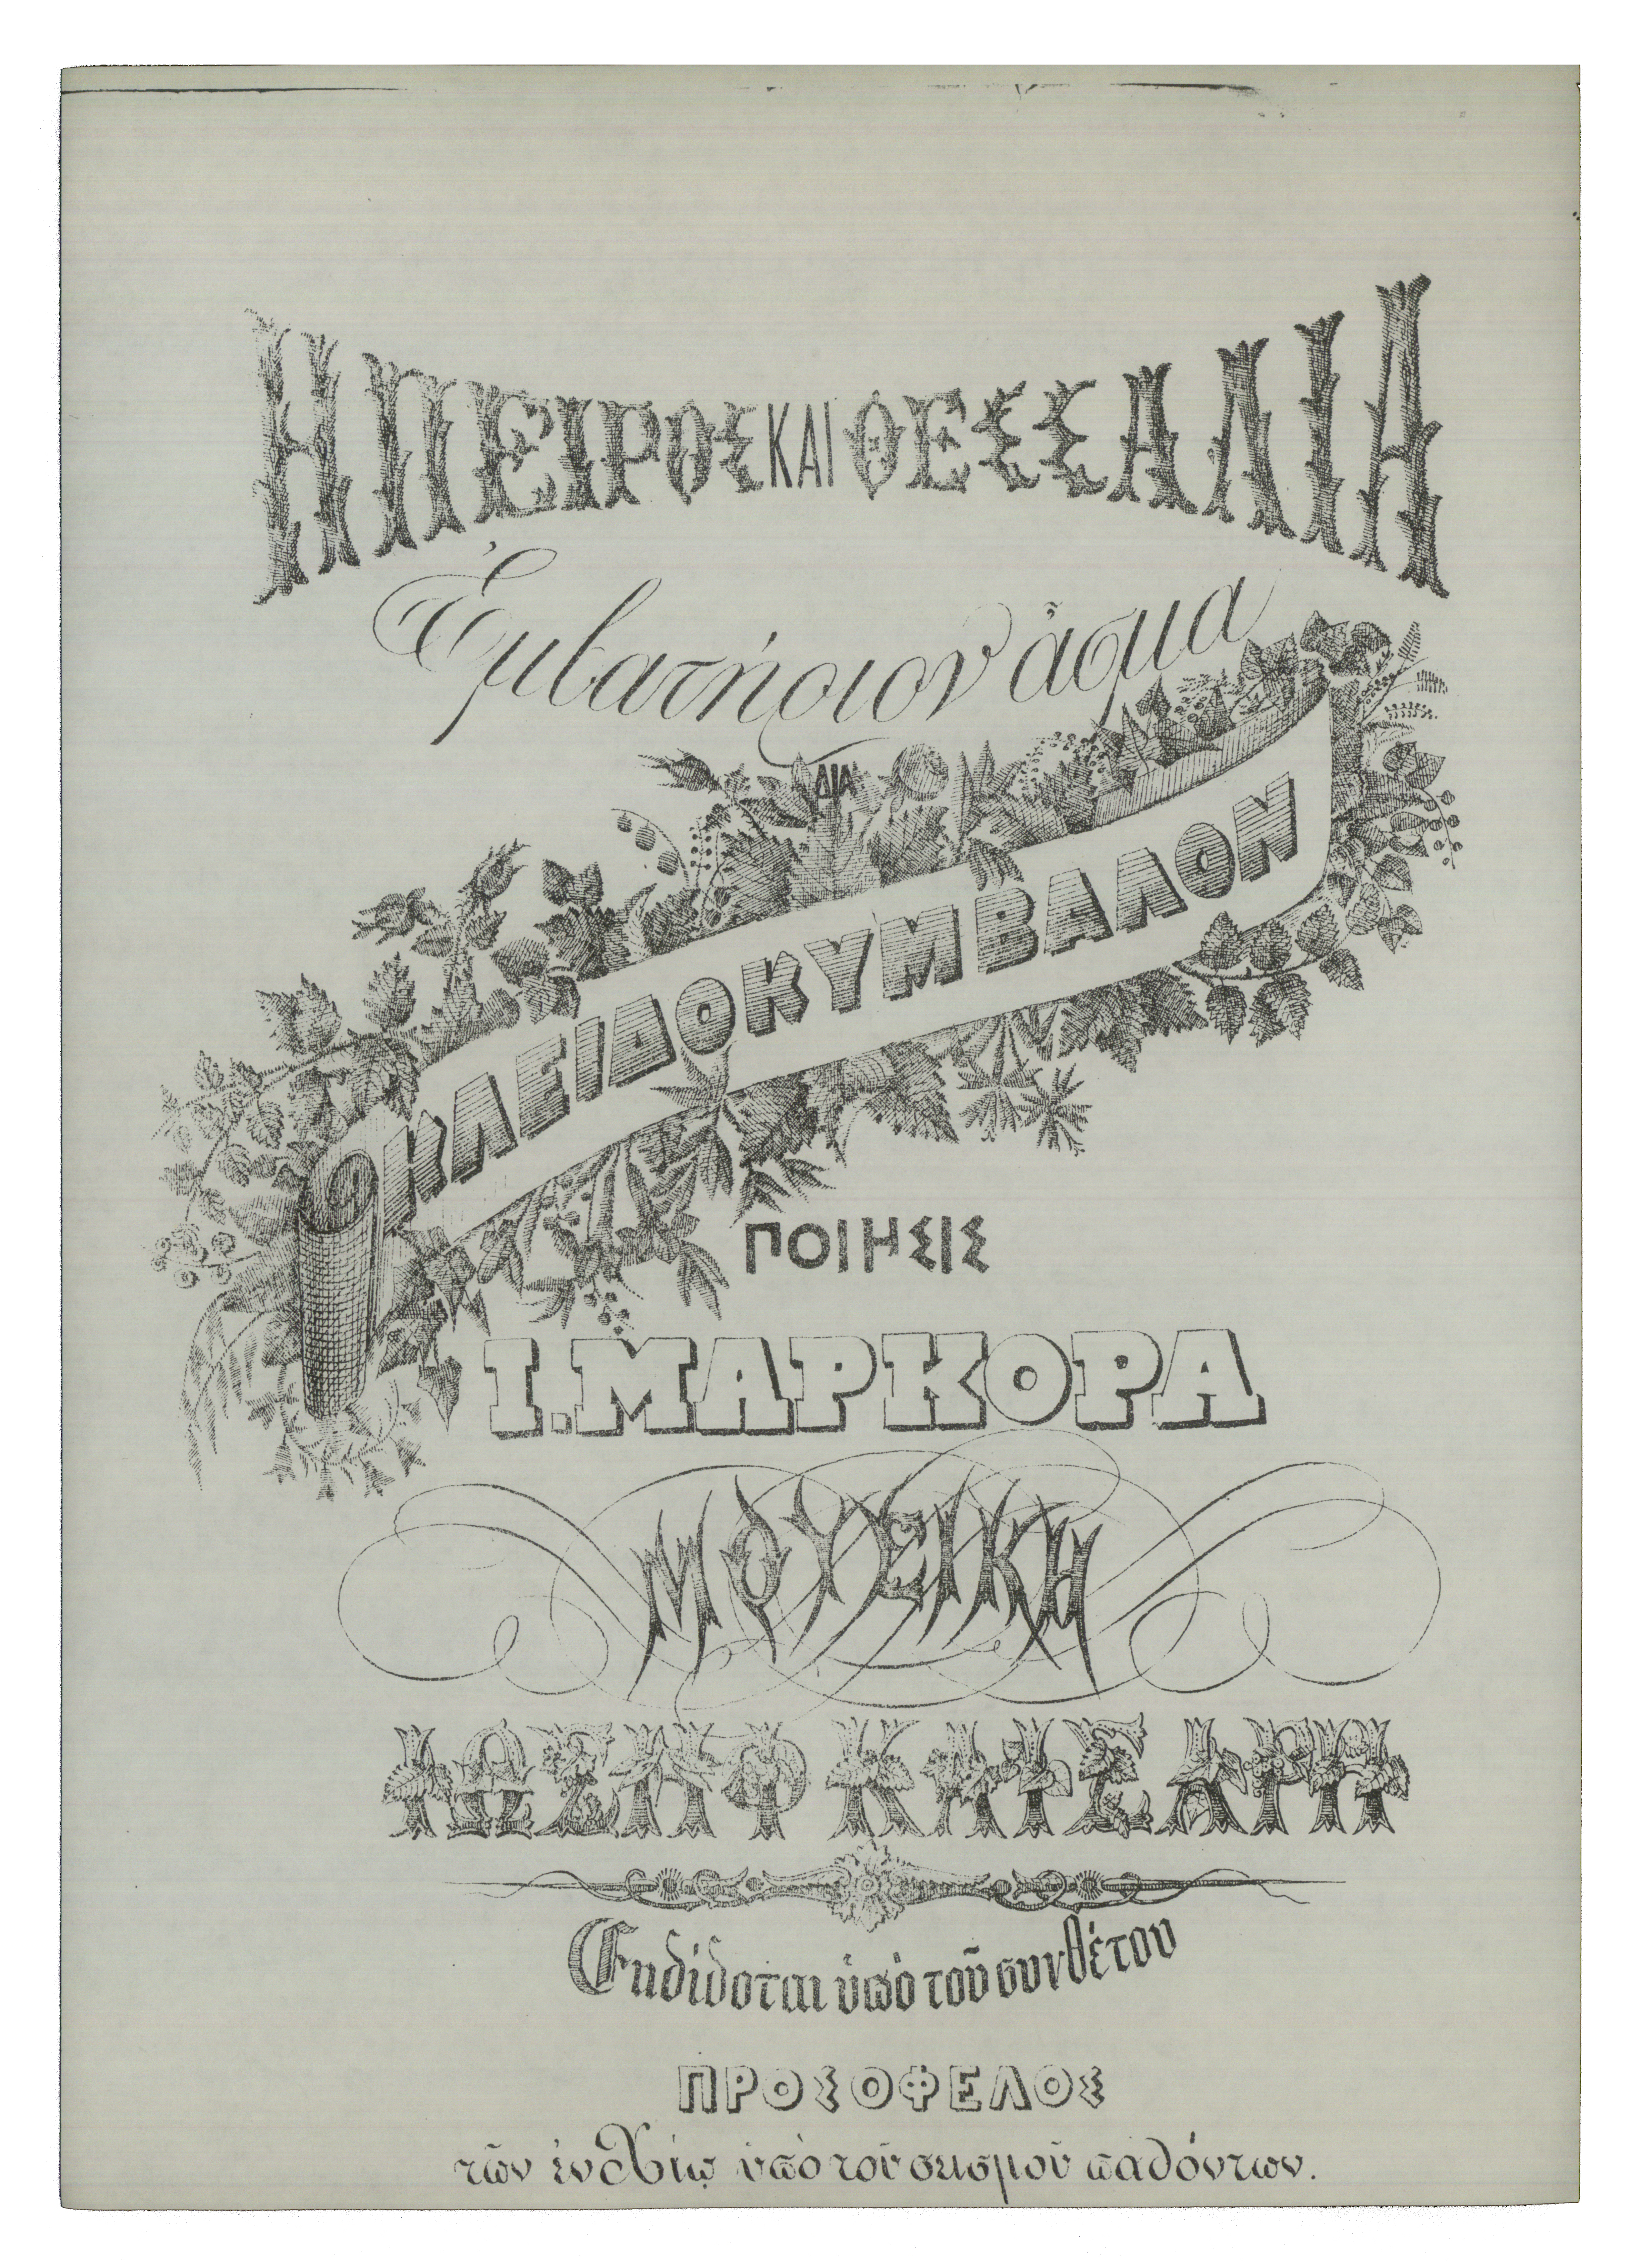 ΗΠΕΙΡΟΣ ΚΑΙ ΘΕΣΣΑΛΙΑ
Ἐμβατήριον ἆσμα
ΔΙΑ
ΚΛΕΙΔΟΚΥΜΒΑΛΟΝ
ΠΟΙΗΣΙΣ
Ι. ΜΑΡΚΟΡΑ
ΜΟΥΣΙΚΗ
ΙΩΣΗΦ ΚΑΙΣΑΡΗ
Εκδίδοται ὑπὸ τοῦ συνθέτου
ΠΡΟΣ ΟΦΕΛΟΣ
τῶν ἐν Χίῳ ὑπὸ τοῦ σεισμοῦ παθόντων.